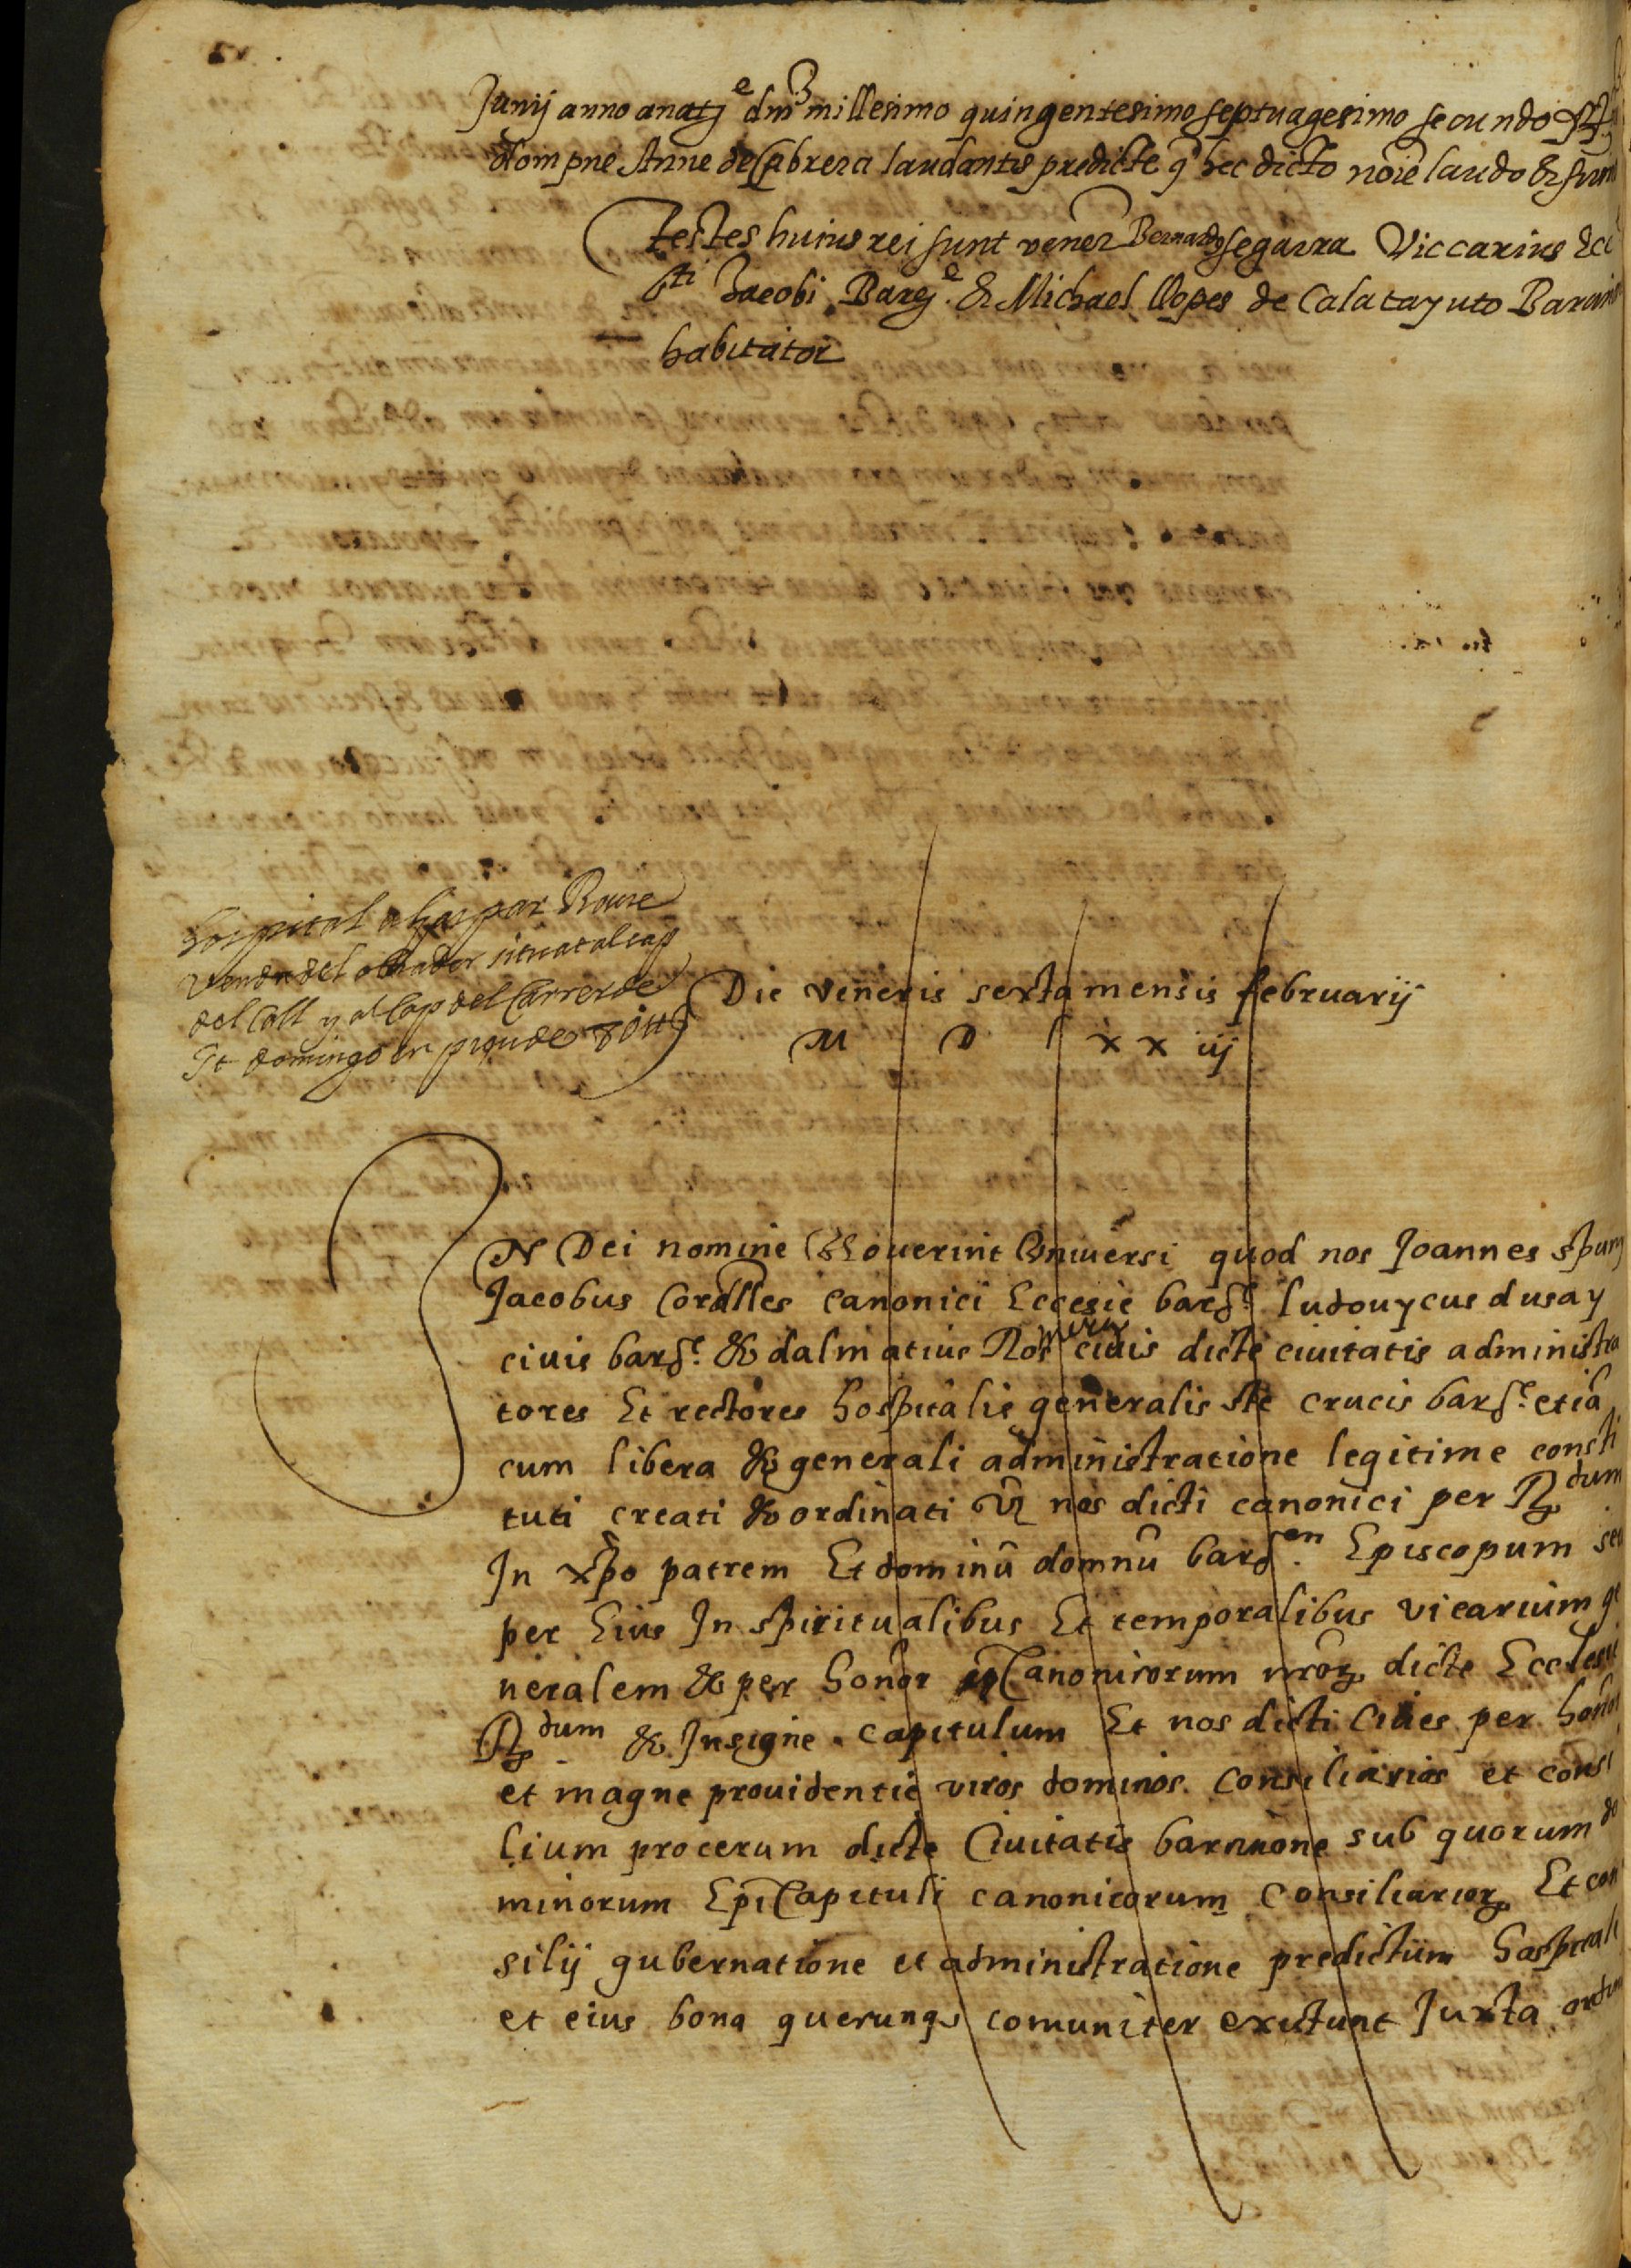 Junij anno a natje dnj millesimo quingentesimo septuagesimo secundo
dompne Anne de Cabrera laudantis predicte q hec dicto noie laudo & firm
Testes huius rei sunt vener Bernardus segarra Viccarius Ecc
Sti Jacobi Barçe & Michael llopes de Calatayuto Barcin
habitator
hospital a Gaspar Roure
venda del obrador situat al cap
del Call y al Cap del Carrer de
St domingo
Die veneris sexta mensis februarij
M D xx iij
IN Dei nomine Noverint Universi quod nos Joannes
Jacobus Cordlles canonici Eccesie barçe ludouycus dusay
civis barçe & dalmatius Ros civis dicte civitatis administra
tores Et rectores hospitalis generalis ste crucis barçe etiā
cum libera & generali administratione legitime consti
tuti creati & ordinati vz nos dicti canonici per Rdum
In xpo patrem Et dominū domnū barçen Episcopum seu
per Eius In spiritualibus Et temporalibus vicarium ge
neralem & per honor Canonicorum nrorz dicte Ecclesie
Rdum & Insigne capitulum Et nos dicti Cives per honor
et magne providentie viros dominos Consiliarios et consi
lium procerum dicte Civitatis barcinone sub quorum do
minorum Epi Capituli canonicorum Consiliariorz Et con
silij gubernatione et administratione predictum hospitale
et eius bona querunqs comuniter existunt Juxta ordin